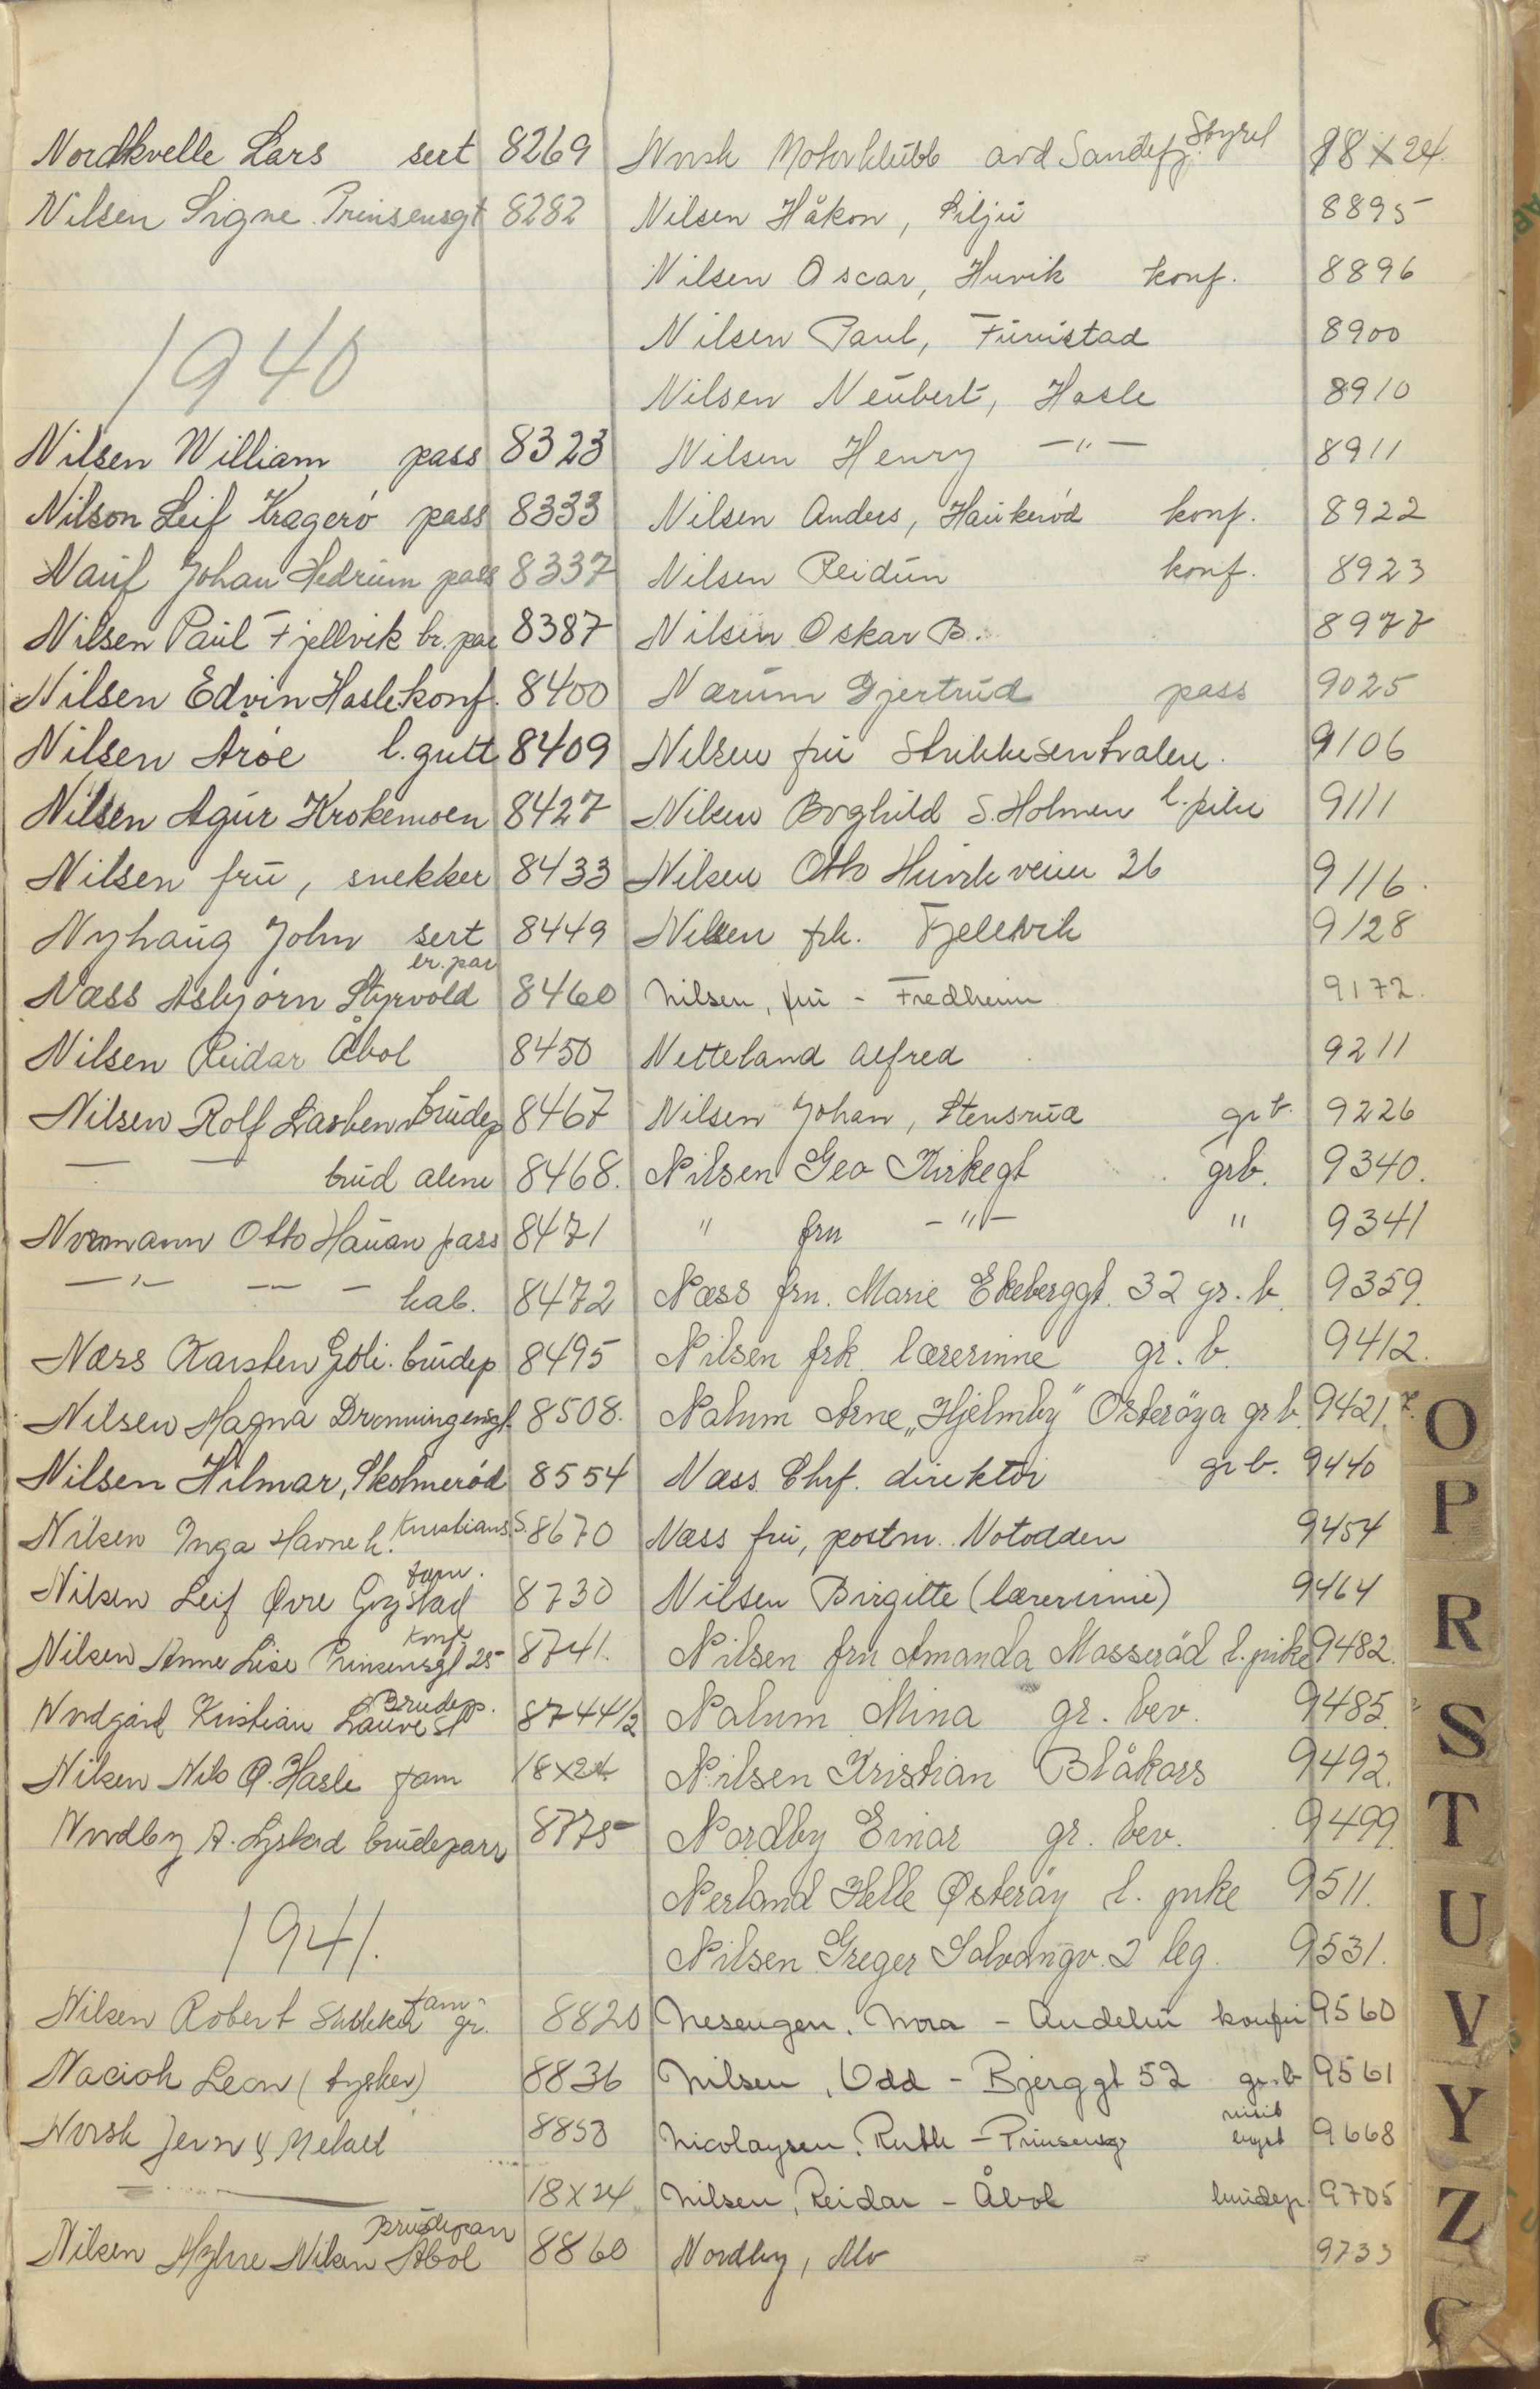 Nordkvelle Lars sert 8269
Nilsen Signe Prinsensgt 8282
1940
Nilsen William pass 8323
Nilson Leif Kragerø pass 8333
Nauf Johan Hedrum pass 8337
Nilsen Paul Fjellvik br. par 8387
Nilsen Edvin Hasle konf. 8400
Nilsen Aröe l. gutt 8409
Nilsen Agur Krokemoen 8427
Nilsen fru, snekker 8433
Nyhaug John sert 8449
br. par
Næss Asbjørn Styrvold 8460
Nilsen Reidar Åbol 8450
Nilsen Rolf brudep 8467
— — brud alene 8468.
Normann Otto Hauan pass 8471
— " — — — kab. 8472
Næss Karsten Goli. brudep 8495
Nilsen Magna Dronningensgt. 8508.
Nilsen Hilmar, Skolmerød 8554
Nilsen Inga Havneh. Kristians.S. 8670
fam.
Nilsen Leif Øvre Gogstad 8730
konf
Nilsen Anne Lise Prinsensgt 25 8741.
Brudep.
Nordgård Kristian Lauvest 8744 1/2
Nilsen Nils Q. Hasle fam 18x24
Nordby A. Lystad brudepar 8775
1941.
fam-
Nilsen Robert gr. 8820
Nacioh Leon (tysker) 8836
Norsk Jern & Metall 8858
— 18x24
Brudepar
Nilsen Myhre Nilsen Åbol 8860
Styret
Norsk Motorklubb avd Sandefj. 18x24.
Nilsen Håkon, Lilju 8895
Nilsen Oscar, Huvik konf. 8896
Nilsen Paul, Furustad 8900
Nilsen Neubert, Hasle 8910
Nilsen Henry — " — 8911
Nilsen Anders, Haukerød konf. 8922
Nilsen Reidun konf. 8923
Nilsen Oskar B. 8977
Nærum Gjertrud pass 9025
Nilsen fru Strikkesentralen. 9106
Nilsen Borghild S. Holmen l. pike 9111
Nilsen Otto Huvikveien 26 9116.
Nilsen frk. Fjellvik 9128
Nilsen, fru - Fredheim 9172.
Netteland Alfred 9211
Nilsen Johan, Stensrud gr b. 9226
Nilsen Geo Kirkegt grb. 9340.
" fru — " — " 9341
Næss fru. Marie Ekeberggt. 32 gr. b. 9359.
Nilsen frk. lærerinne gr. b. 9412.
Nalum Arne „Hjelmby" Østerøya gr b. 9421.
Næss. Chrf. direktör gr b. 9440
Næss fru, postm. Notodden 9454
Nilsen Birgitte (lærerinne) 9464
Nilsen fru Amanda Masserød l. pike 9482.
Nalum Mina gr. bev. 9485.
Nilsen Kristian Blåkors 9492.
Nordby Einar gr. bev. 9499.
Nerland Helle Østerøy l. pike 9511.
Nilsen Greger Solvangv. 2 leg. 9531.
Nesengen, Nora - 9560
Nilsen, Odd - Bjerggt 52 gr.b 9561
visit
Nicolaysen, Ruth - Prinsensg 9668
Nilsen, Reidar - Åbol brudep. 9705
Nordby, Alv 9733
O
P
R
S
T
U
V
Y
Z